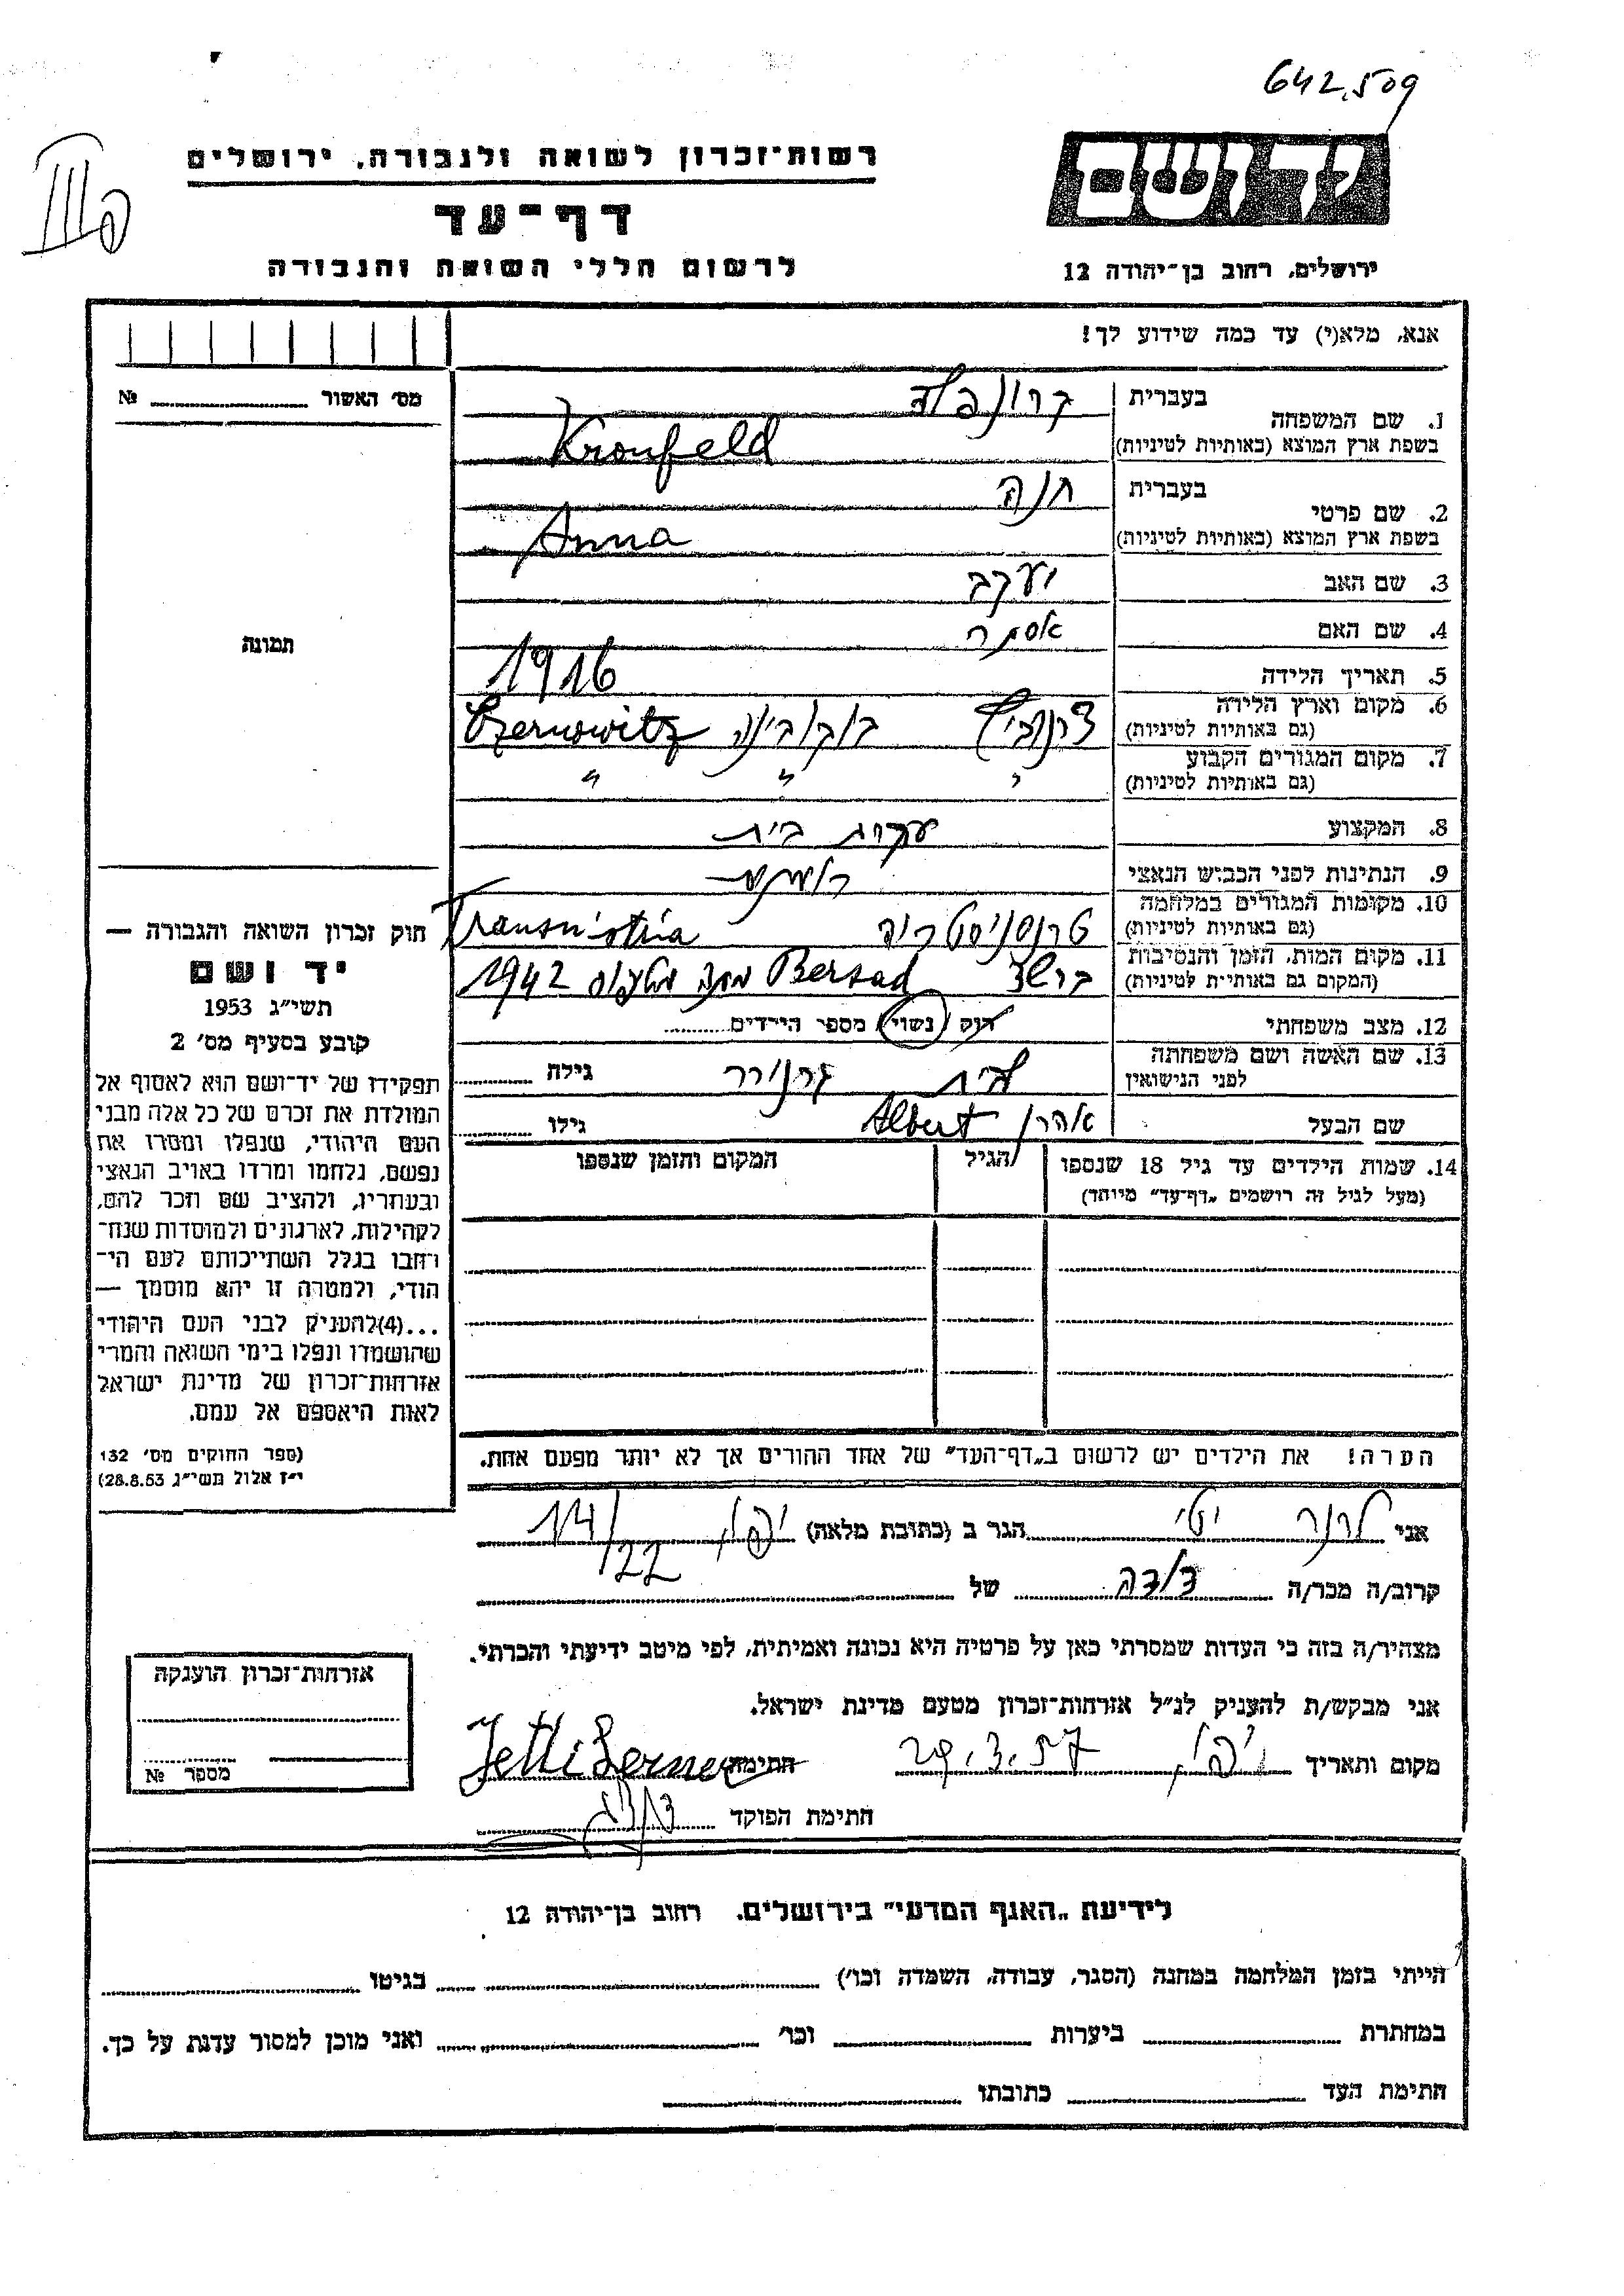 642.509
רשות־זכרון לשואה ולגבורה, ירושלים
יד ושם
דף־עד
לרשום חללי השואה והגבורה
ירושלים, רחוב בן־יהודה 12
אנא, מלא(י) עד כמה שידוע לך!
מס׳ האשור № 
1. שם המשפחה בעברית קרונפלד
בשפת ארץ המוצא (באותיות לטיניות) Kronfeld
2. שם פרטי בעברית חנה
בשפת ארץ המוצא (באותיות לטיניות) Anna
3. שם האב יעקב
4. שם האם אסתר
תמונה
5. תאריך הלידה 1916
6. מקום וארץ הלידה (גם באותיות לטיניות) צרנוביץ בוקובינה Czernowitz
7. מקום המגורים הקבוע (גם באותיות לטיניות) " " "
8. המקצוע עקרת בית
9. הנתינות לפני הכבוש הנאצי
10. מקומות המגורים במלחמה (גם באותיות לטיניות) טרנסניסטריה Transnistria
11. מקום המות, הזמן והנסיבות (המקום גם באותיות לטיניות) ברשד Bersad 1942
12. מצב משפחתי רווק/נשוי/ מספר הילדים
13. שם האשה ושם משפחתה לפני הנישואין לבית גילה
שם הבעל אהרן Albert גילו
14. שמות הילדים עד גיל 18 שנספו הגיל המקום והזמן שנספו
(מעל לגיל זה רושמים „דף־עד” מיוחד)
הערה! את הילדים יש לרשום ב„דף־העד” של אחד ההורים אך לא יותר מפעם אחת.
חוק זכרון השואה והגבורה —
יד ושם
תשי״ג 1953
קובע בסעיף מס׳ 2
תפקידו של יד־ושם הוא לאסוף אל
המולדת את זכרם של כל אלה מבני
העם היהודי, שנפלו ומסרו את
נפשם, נלחמו ומרדו באויב הנאצי
ובעוזריו, ולהציב שם וזכר להם,
לקהילות, לארגונים ולמוסדות שנח־
רבו בגלל השתייכותם לעם הי־
הודי, ולמטרה זו יהא מוסמך —
...(4)להעניק לבני העם היהודי
שהושמדו ונפלו בימי השואה והמרי
אזרחות־זכרון של מדינת ישראל
לאות היאספם אל עמם.
(ספר החוקים מס׳ 132
י״ז אלול תשי״ג 28.8.53)
אני לרנר יטי הגר ב (כתובת מלאה) יפו 14/22
קרוב/ה מכר/ה דודה של
מצהיר/ה בזה כי העדות שמסרתי כאן על פרטיה היא נכונה ואמיתית, לפי מיטב ידיעתי והכרתי.
אני מבקש/ת להעניק לנ״ל אזרחות־זכרון מטעם מדינת ישראל.
מקום ותאריך יפו 29.3.57 חתימה Jetti Lerner
חתימת הפוקד
אזרחות־זכרון הוענקה
מספר №
לידיעת „האגף המדעי” בירושלים, רחוב בן־יהודה 12
הייתי בזמן המלחמה במחנה (הסגר, עבודה, השמדה וכו׳) בגיטו
במחתרת ביערות וכו׳ ואני מוכן למסור עדות על כך.
חתימת העד כתובתו